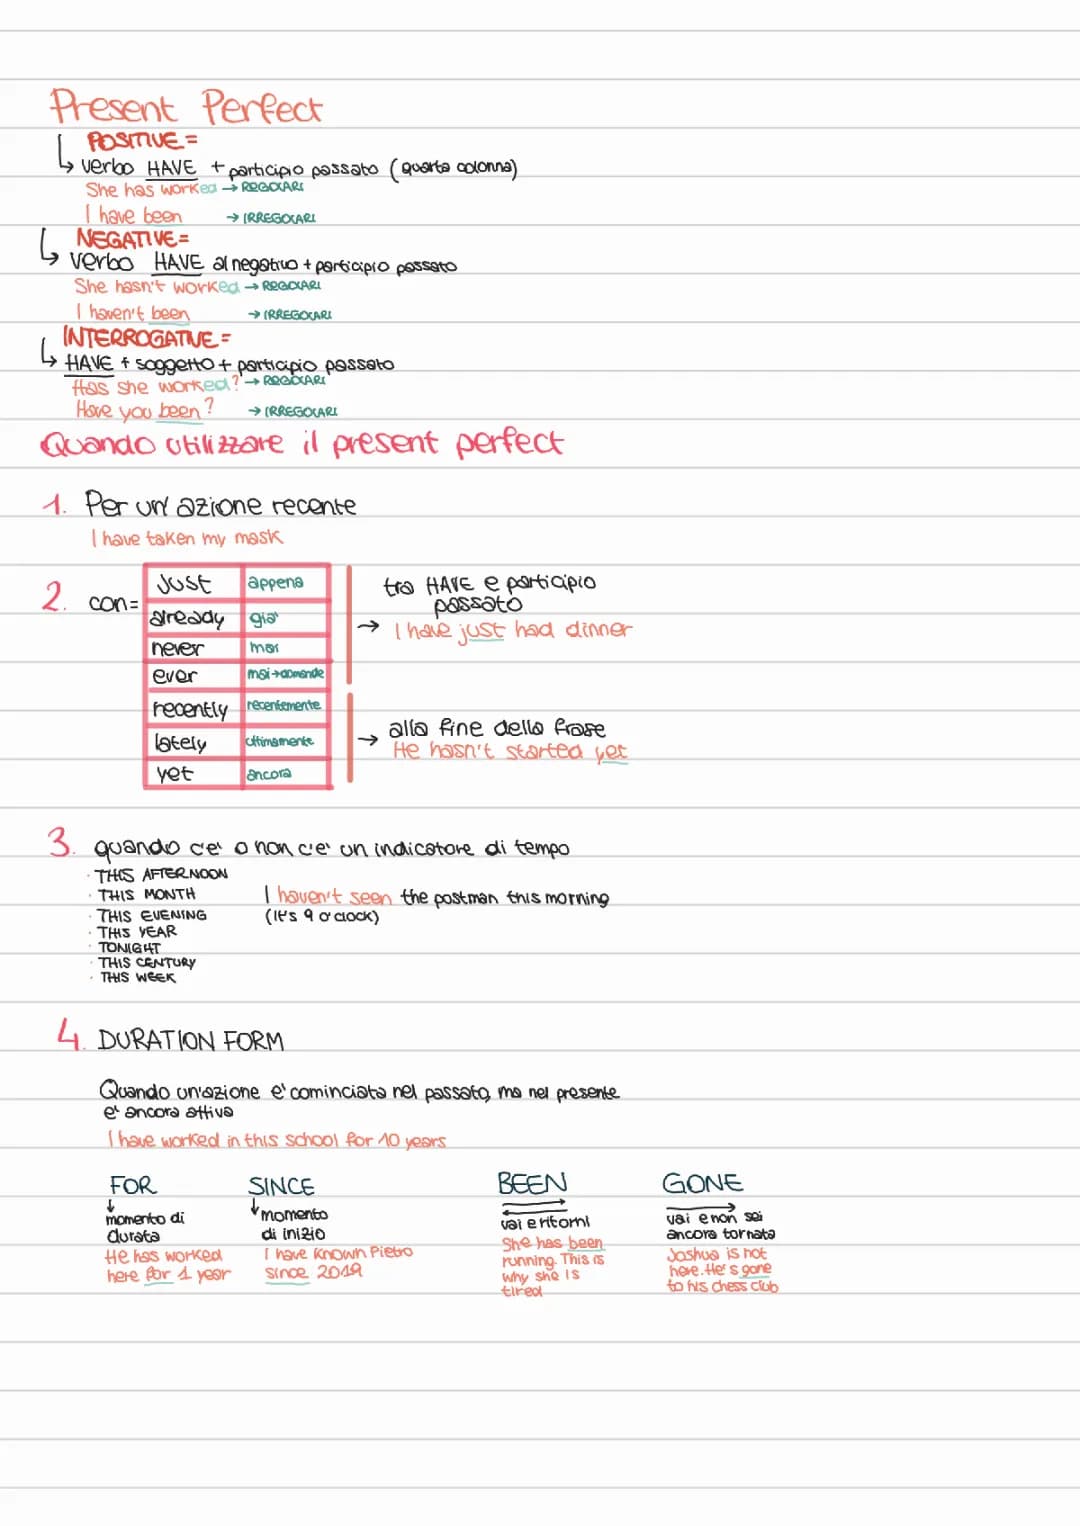 Present Perfect
POSITIVE =
verbo HAVE + participio passato (quarta colonna)
She has worked → REGOLARI
I have been → IRREGOLARI
NEGATIVE =
verbo HAVE al negativo + participio passato
She hasn't worked → REGOLARI
I haven't been → IRREGOLARI
INTERROGATIVE =
HAVE + soggetto + participio passato
Has she worked? → REGOLARI
Have you been? → IRREGOLARI
Quando utilizzare il present perfect
1. Per un'azione recente
I have taken my mask
2. con=
Just appena
already gia'
never mai
ever mai → domande
recently recentemente
lately ultimamente
yet ancora
tra HAVE e participio
passato
→ I have just had dinner
→ alla fine della frase
He hasn't started yet
3. quando c'e' o non c'e' un indicatore di tempo
· THIS AFTERNOON
· THIS MONTH
· THIS EVENING
· THIS YEAR
· TONIGHT
· THIS CENTURY
· THIS WEEK
I haven't seen the postman this morning
(It's 9 o'clock)
4. DURATION FORM
Quando un'azione e' cominciata nel passato, ma nel presente
e' ancora attiva
I have worked in this school for 10 years
FOR
momento di
durata
He has worked
here for 1 year
SINCE
momento
di inizio
I have known Pietro
since 2019
BEEN
vai e ritorni
She has been
running. This is
why she is
tired
GONE
vai e non sei
ancora tornata
Joshua is not
here. He's gone
to his chess club